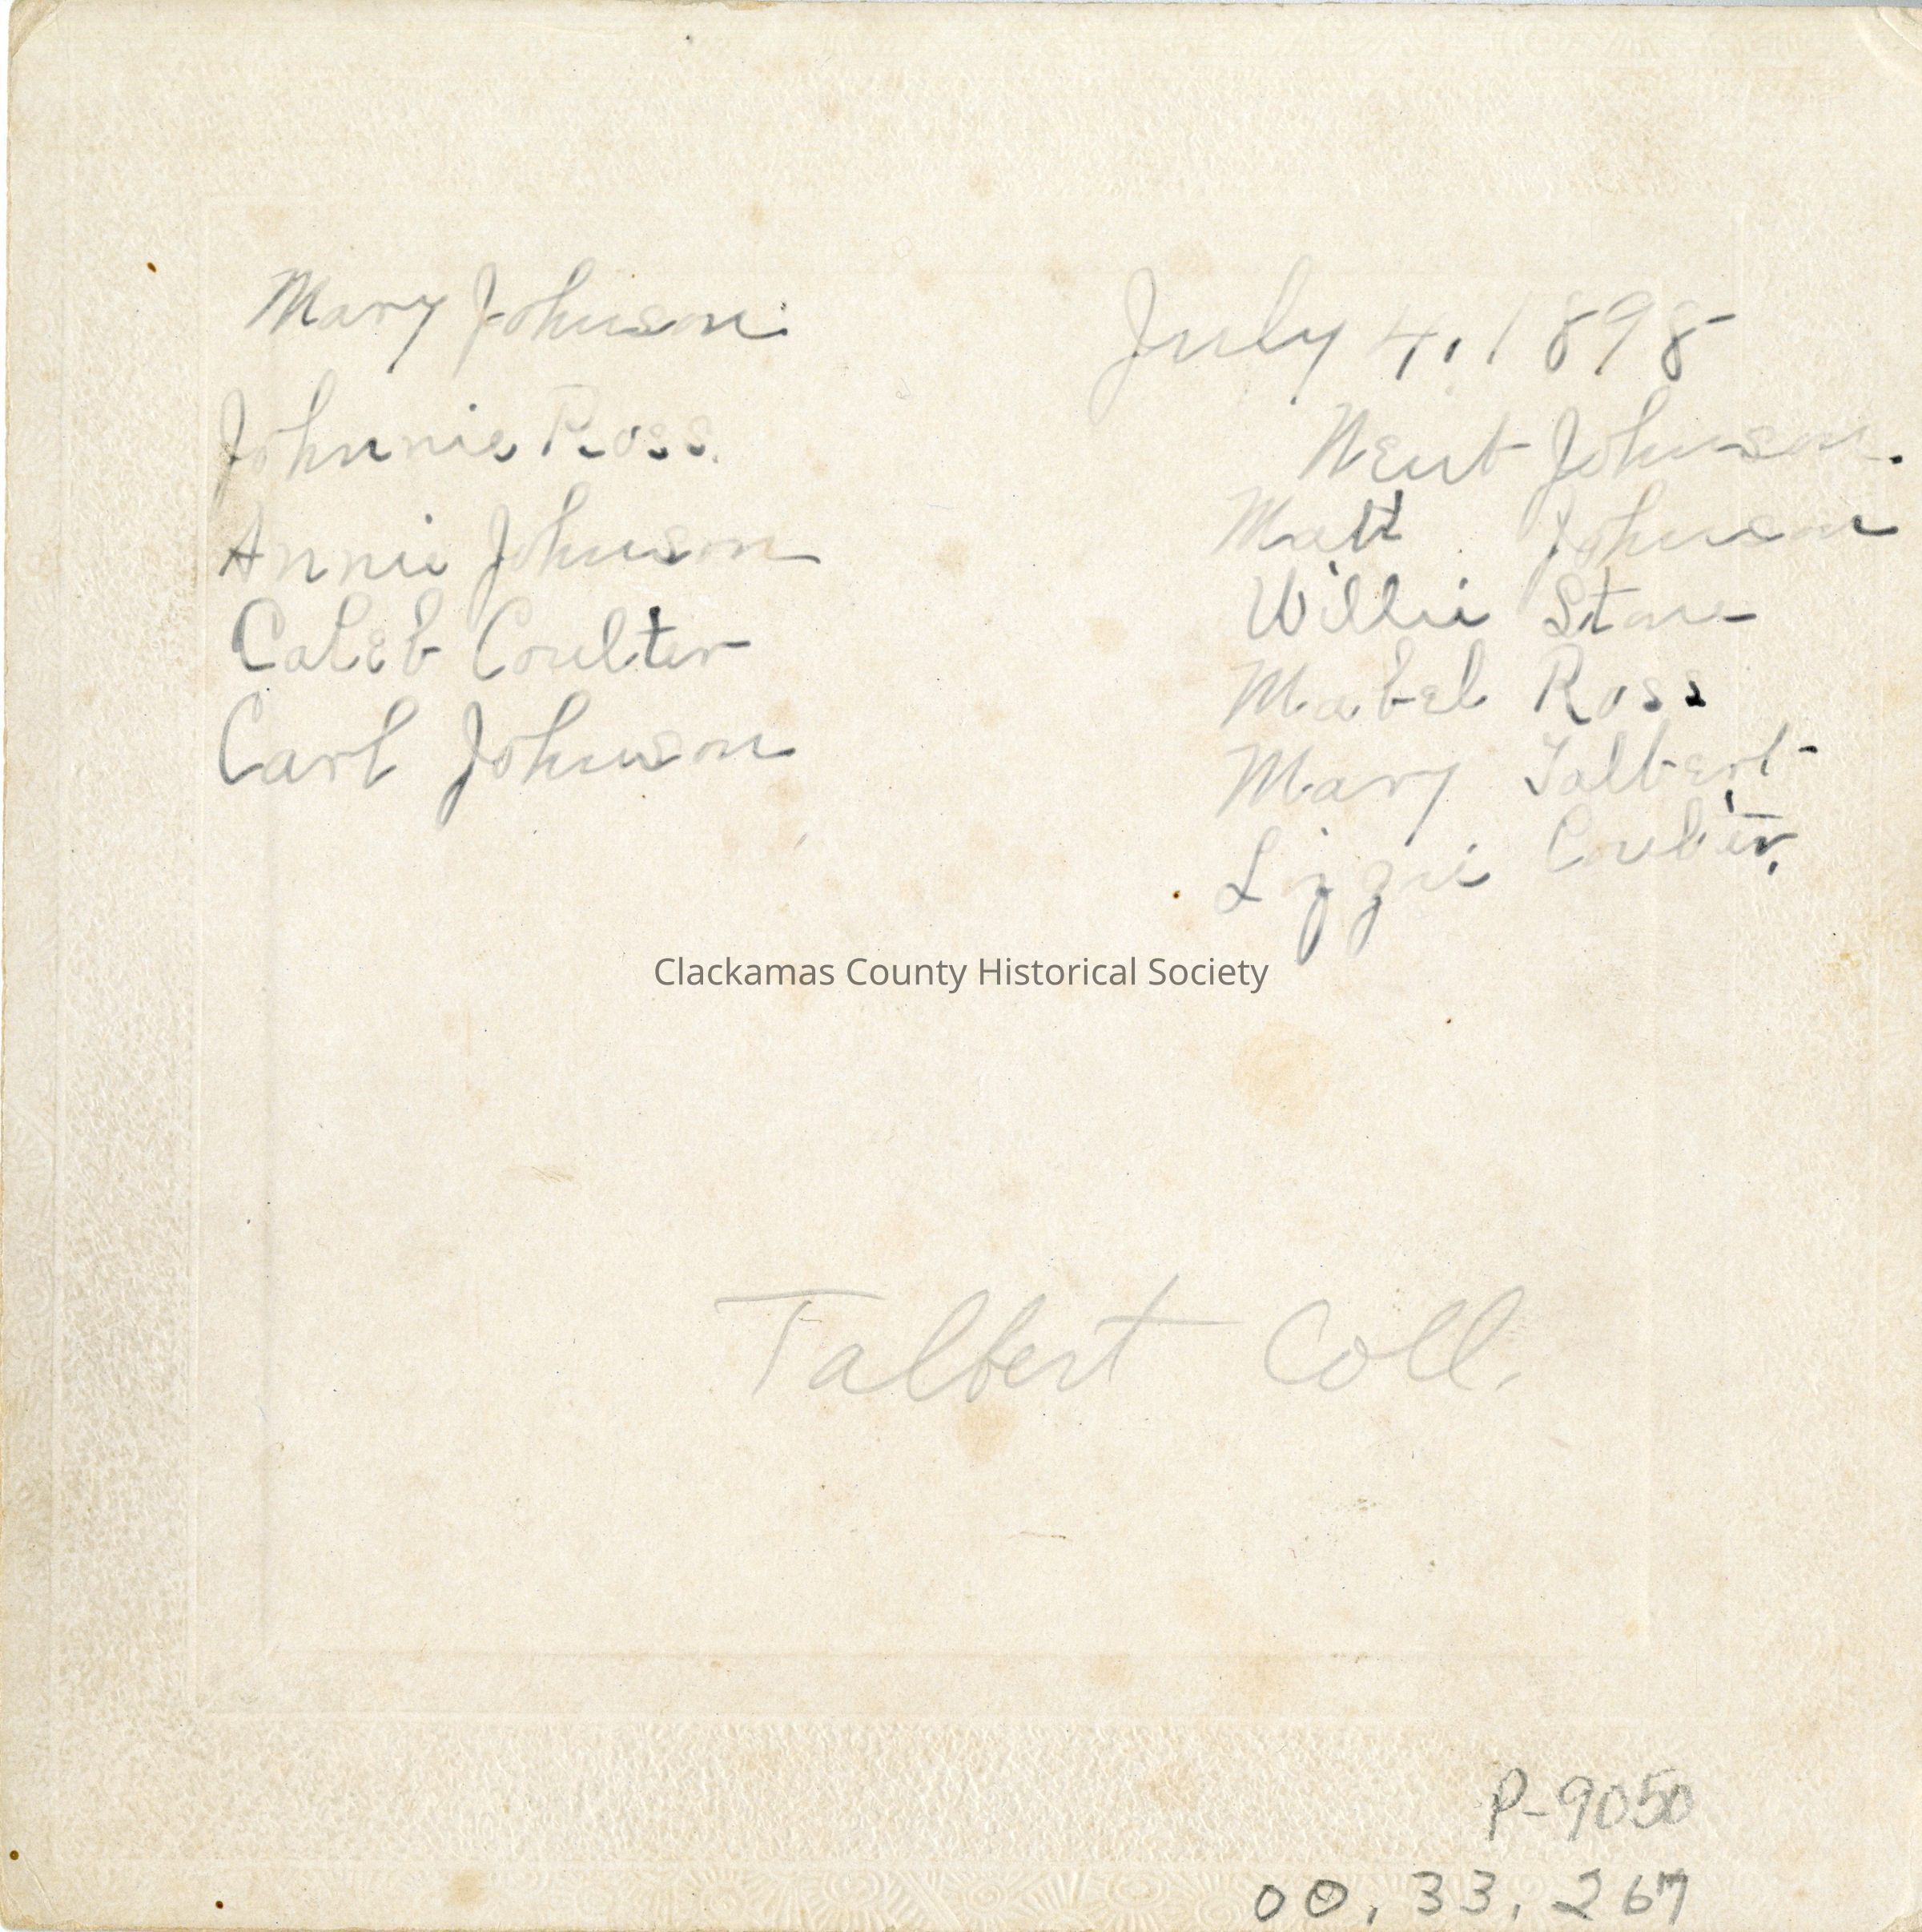 Mary Johnson.
Johnnie Ross.
Annie Johnson
Caleb Coulter
Carl Johnson
July 4, 1898
Newt Johnson.
Matt Johnson
Willie
Mabel Ross
Mary Talbert
Lizzie Coulter.
Clackamas County Historical Society
Talbert Coll.
P-9050
00.33.267